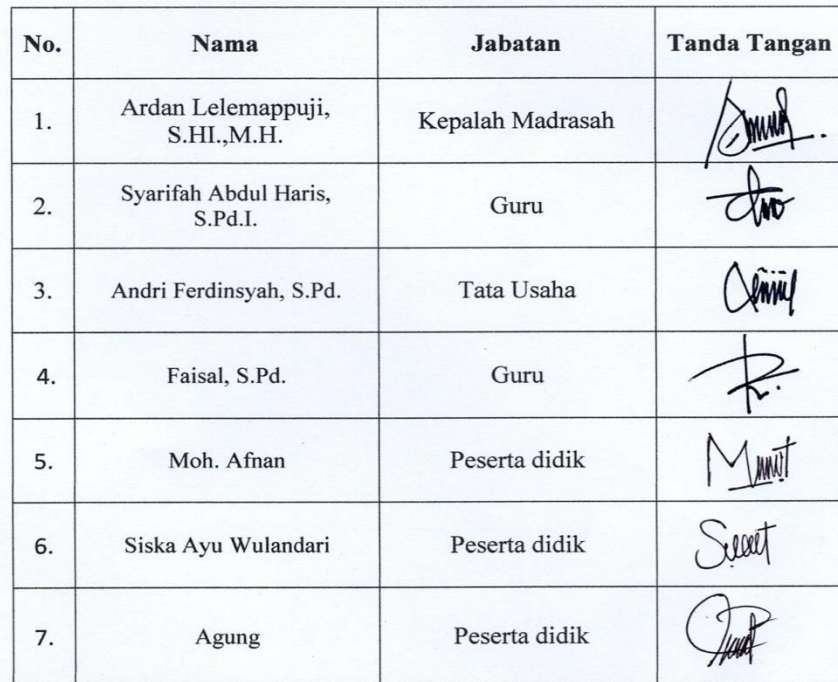 No. Nama Jabatan Tanda Tangan
1. Ardan Lelemappuji, S.HI.,M.H. Kepalah Madrasah
2. Syarifah Abdul Haris, S.Pd.I. Guru
3. Andri Ferdinsyah, S.Pd. Tata Usaha
4. Faisal, S.Pd. Guru
5. Moh. Afnan Peserta didik
6. Siska Ayu Wulandari Peserta didik
7. Agung Peserta didik